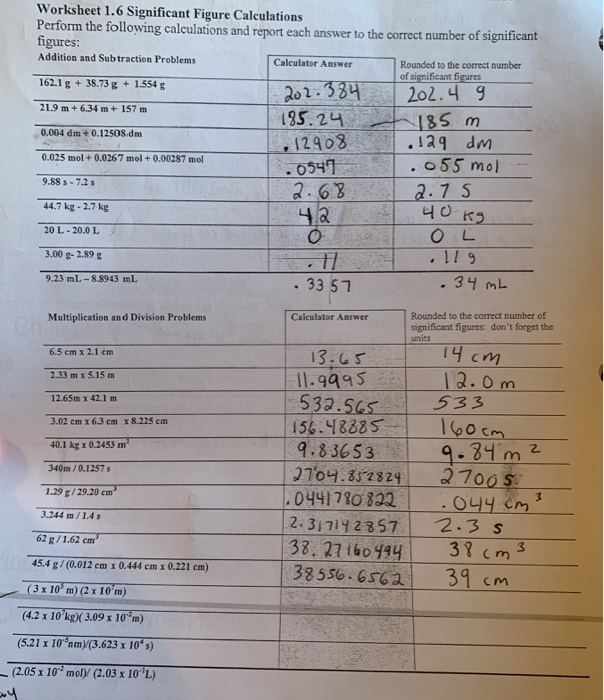 Worksheet 1.6 Significant Figure Calculations
Perform the following calculations and report each answer to the correct number of significant
figures:
Addition and Subtraction Problems Calculator Answer Rounded to the correct number
of significant figures
162.1 g + 38.73 g + 1.554 g 202.384 202.4 g
21.9 m + 6.34 m + 157 m 185.24 185 m
0.004 dm + 0.12508 dm .12908 .129 dm
0.025 mol + 0.0267 mol + 0.00287 mol .0547 .055 mol
9.88 s - 7.2 s 2.68 2.7 s
44.7 kg - 2.7 kg 42 40 kg
20 L - 20.0 L 0 0 L
3.00 g- 2.89 g .11 .11 g
9.23 mL - 8.8943 mL .3357 .34 mL
Multiplication and Division Problems Calculator Answer Rounded to the correct number of
significant figures: don't forget the
units
6.5 cm x 2.1 cm 13.65 14 cm
2.33 m x 5.15 m 11.9995 12.0 m
12.65m x 42.1 m 532.565 533
3.02 cm x 6.3 cm x 8.225 cm 156.48885 160 cm
40.1 kg x 0.2453 m³ 9.83653 9.84 m²
340m / 0.1257 s 2704.852824 2700 s
1.29 g / 29.20 cm³ .0441780822 .044 cm³
3.244 m / 1.4 s 2.317142857 2.3 s
62 g / 1.62 cm³ 38.27160494 38 cm³
45.4 g / (0.012 cm x 0.444 cm x 0.221 cm) 38556.6562 39 cm
(3 x 10⁵ m) (2 x 10⁷m)
(4.2 x 10⁷kg)( 3.09 x 10⁻²m)
(5.21 x 10⁻⁵nm)/(3.623 x 10⁴ s)
(2.05 x 10⁻² mol)/ (2.03 x 10⁻¹L)